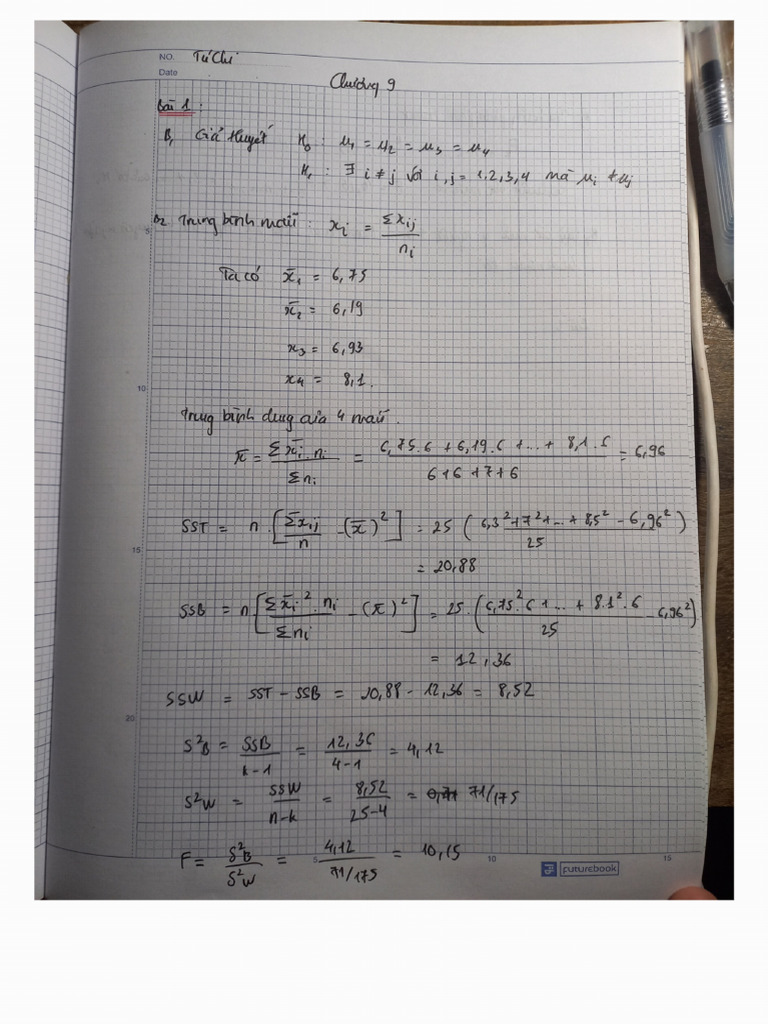 NO. Tú Chi
Date
Chương 9
Bài 1 :
B1 Giả thuyết H0 : μ1 = μ2 = μ3 = μ4
H1 : ∃ i ≠ j với i, j = 1,2,3,4 mà μi ≠ μj
B2 Trung bình mẫu : xi = Σxij / ni
Ta có x̄1 = 6,75
x̄2 = 6,19
x3 = 6,93
x4 = 8,1.
Trung bình chung của 4 mẫu.
x̄ = Σx̄i.ni / Σni = 6,75.6 + 6,19.6 + ... + 8,1.6 / 6+6+7+6 = 6,96
SST = n.[Σxij / n - (x̄)²] = 25 (6,3² + 7² + ... + 8,5² - 6,96² / 25)
= 20,88
SSB = n[Σx̄i².ni / Σni - (x̄)²] = 25.(6,75².6 + ... + 8.1².6 / 25 - 6,96²)
= 12,36
SSW = SST - SSB = 20,88 - 12,36 = 8,52
S²B = SSB / k-1 = 12,36 / 4-1 = 4,12
S²W = SSW / n-k = 8,52 / 25-4 = 71/175
F = S²B / S²W = 4,12 / 71/175 = 10,15
5 10 15 20
5 10 15
futurebook